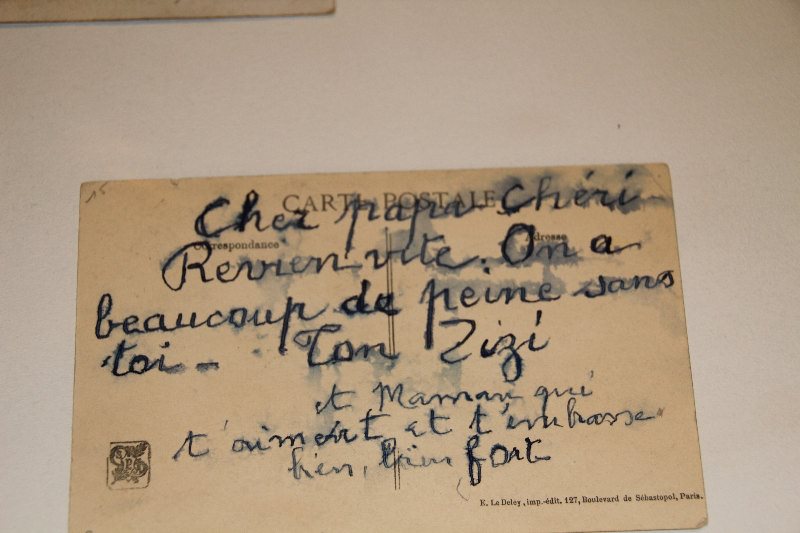 15
CARTE POSTALE
Cher papa Chéri
Correspondance
Adresse
Revien vite. On a
beaucoup de peine sans
toi - Ton Zizi
et Maman qui
t'aiment et t'embrasse
bien, bien fort
E. Le Deley, imp.-édit. 127, Boulevard de Sébastopol, Paris.